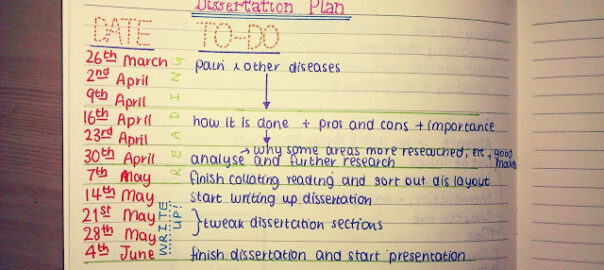 Dissertation Plan
DATE TO-DO
26th March pain & other diseases
2nd April
9th April
16th April how it is done + pros and cons + importance
23rd April
→ why some areas more researched, etc, good
30th April analyse and further research
7th May finish collating reading and sort out dis layout
14th May start writing up dissertation
21st May
} tweak dissertation sections
28th May
4th June finish dissertation and start presentation
READING
WRITE UP!